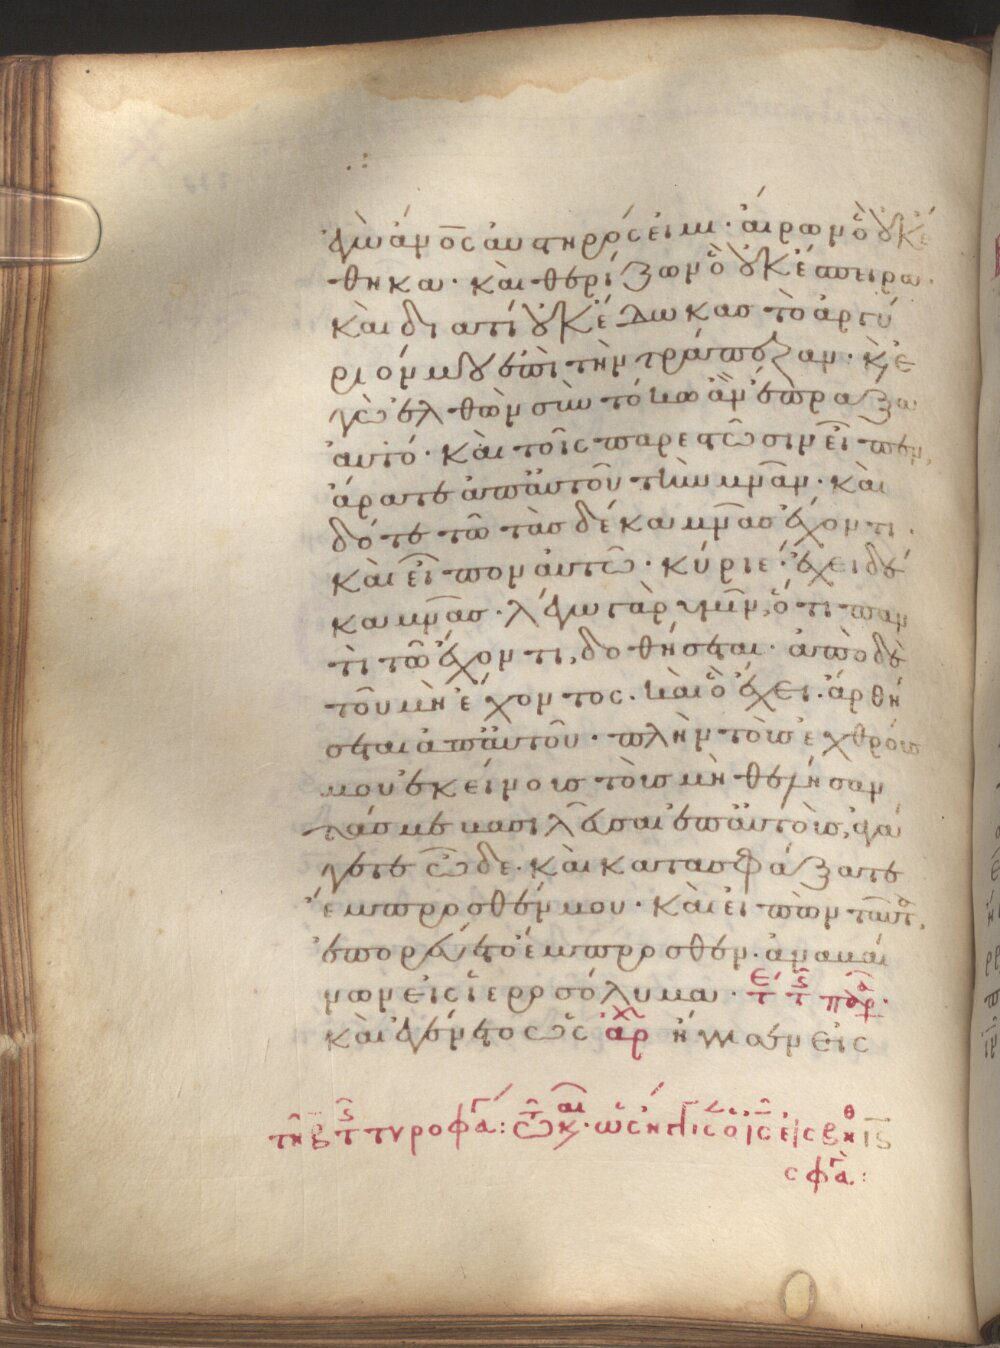 ἐγὼ ἄν̅ο̅ς̅ αὐστηρός εἰμι· αἴρων ὃ οὐκ ἔ
θηκα· καὶ θερίζων ὃ οὐκ ἔσπειρα·
καὶ διατί οὐκ ἔδωκας τὸ ἀργύ
ριόν μου ἐπὶ τὴν τράπεζαν· κ̀ ἐ
γὼ ἐλθὼν σὺν τόκω ἂν ἔπραξα
αὐτό· καὶ τοῖς παρεστῶσιν εἶπεν,
ἄρατε ἀπ' αὐτοῦ τὴν μνᾶν· καὶ
δότε τῶ τὰς δέκα μνᾶς ἔχοντι·
καὶ εἶπον αὐτῶ· κύριε· ἔχει δέ
κα μνᾶς· λέγω γὰρ ὑμῖν, ὅτι παν
τὶ τῶ ἔχοντι, δοθήσεται· ἀπὸ δὲ
τοῦ μὴ ἔχοντος. καὶ ὃ ἔχει. ἀρθή
σεται ἀπ' αὐτοῦ· πλὴν τοὺς ἐχθρούς
μου ἐκείνους τοὺς μὴ θελήσαν
τάς με βασιλεῦσαι ἐπ' αὐτοὺς, ἀγά
γετε ὧδε· καὶ κατασφάξατε
ἔμπροσθέν μου· καὶ εἰπὼν ταῦτ̅α,
ἐπορεύετο ἔμπροσθεν· ἀναβαί
νων εἰς ἱεροσόλυμα·
καὶ ἐγένετο ὡς ἀρχ ἤγγισεν εἰς
τῆ β τ̅ς̅ τυροφά: